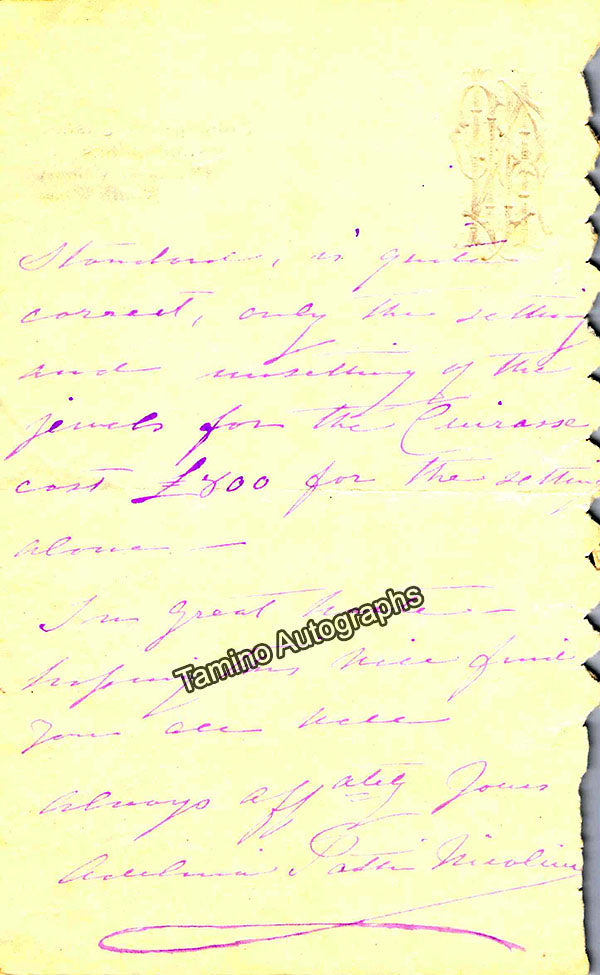 Standard, is quite
correct, only the setting
and unsetting of the
jewels for the Cuirasse
cost £800 for the setting
alone —
In great haste —
hoping this will find
you all well
Always affately yours
Adelina Patti Nicolini
Tamino Autographs